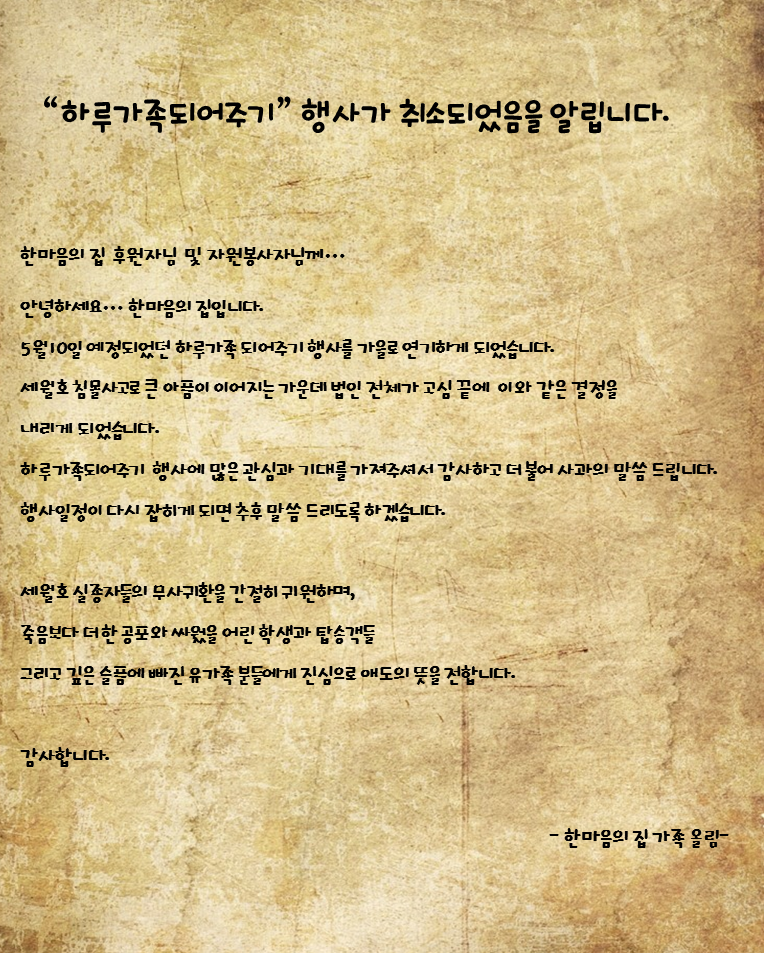 “하루가족되어주기” 행사가 취소되었음을 알립니다.
한마음의 집 후원자님 및 자원봉사자님께...
안녕하세요... 한마음의 집입니다.
5월10일 예정되었던 하루가족 되어주기 행사를 가을로 연기하게 되었습니다.
세월호 침몰사고로 큰 아픔이 이어지는 가운데 법인 전체가 고심 끝에 이와 같은 결정을
내리게 되었습니다.
하루가족되어주기 행사에 많은 관심과 기대를 가져주셔서 감사하고 더불어 사과의 말씀 드립니다.
행사일정이 다시 잡히게 되면 추후 말씀 드리도록 하겠습니다.
세월호 실종자들의 무사귀환을 간절히 귀원하며,
죽음보다 더한 공포와 싸웠을 어린 학생과 탑승객들
그리고 깊은 슬픔에 빠진 유가족 분들에게 진심으로 애도의 뜻을 전합니다.
감사합니다.
- 한마음의 집 가족 올림-